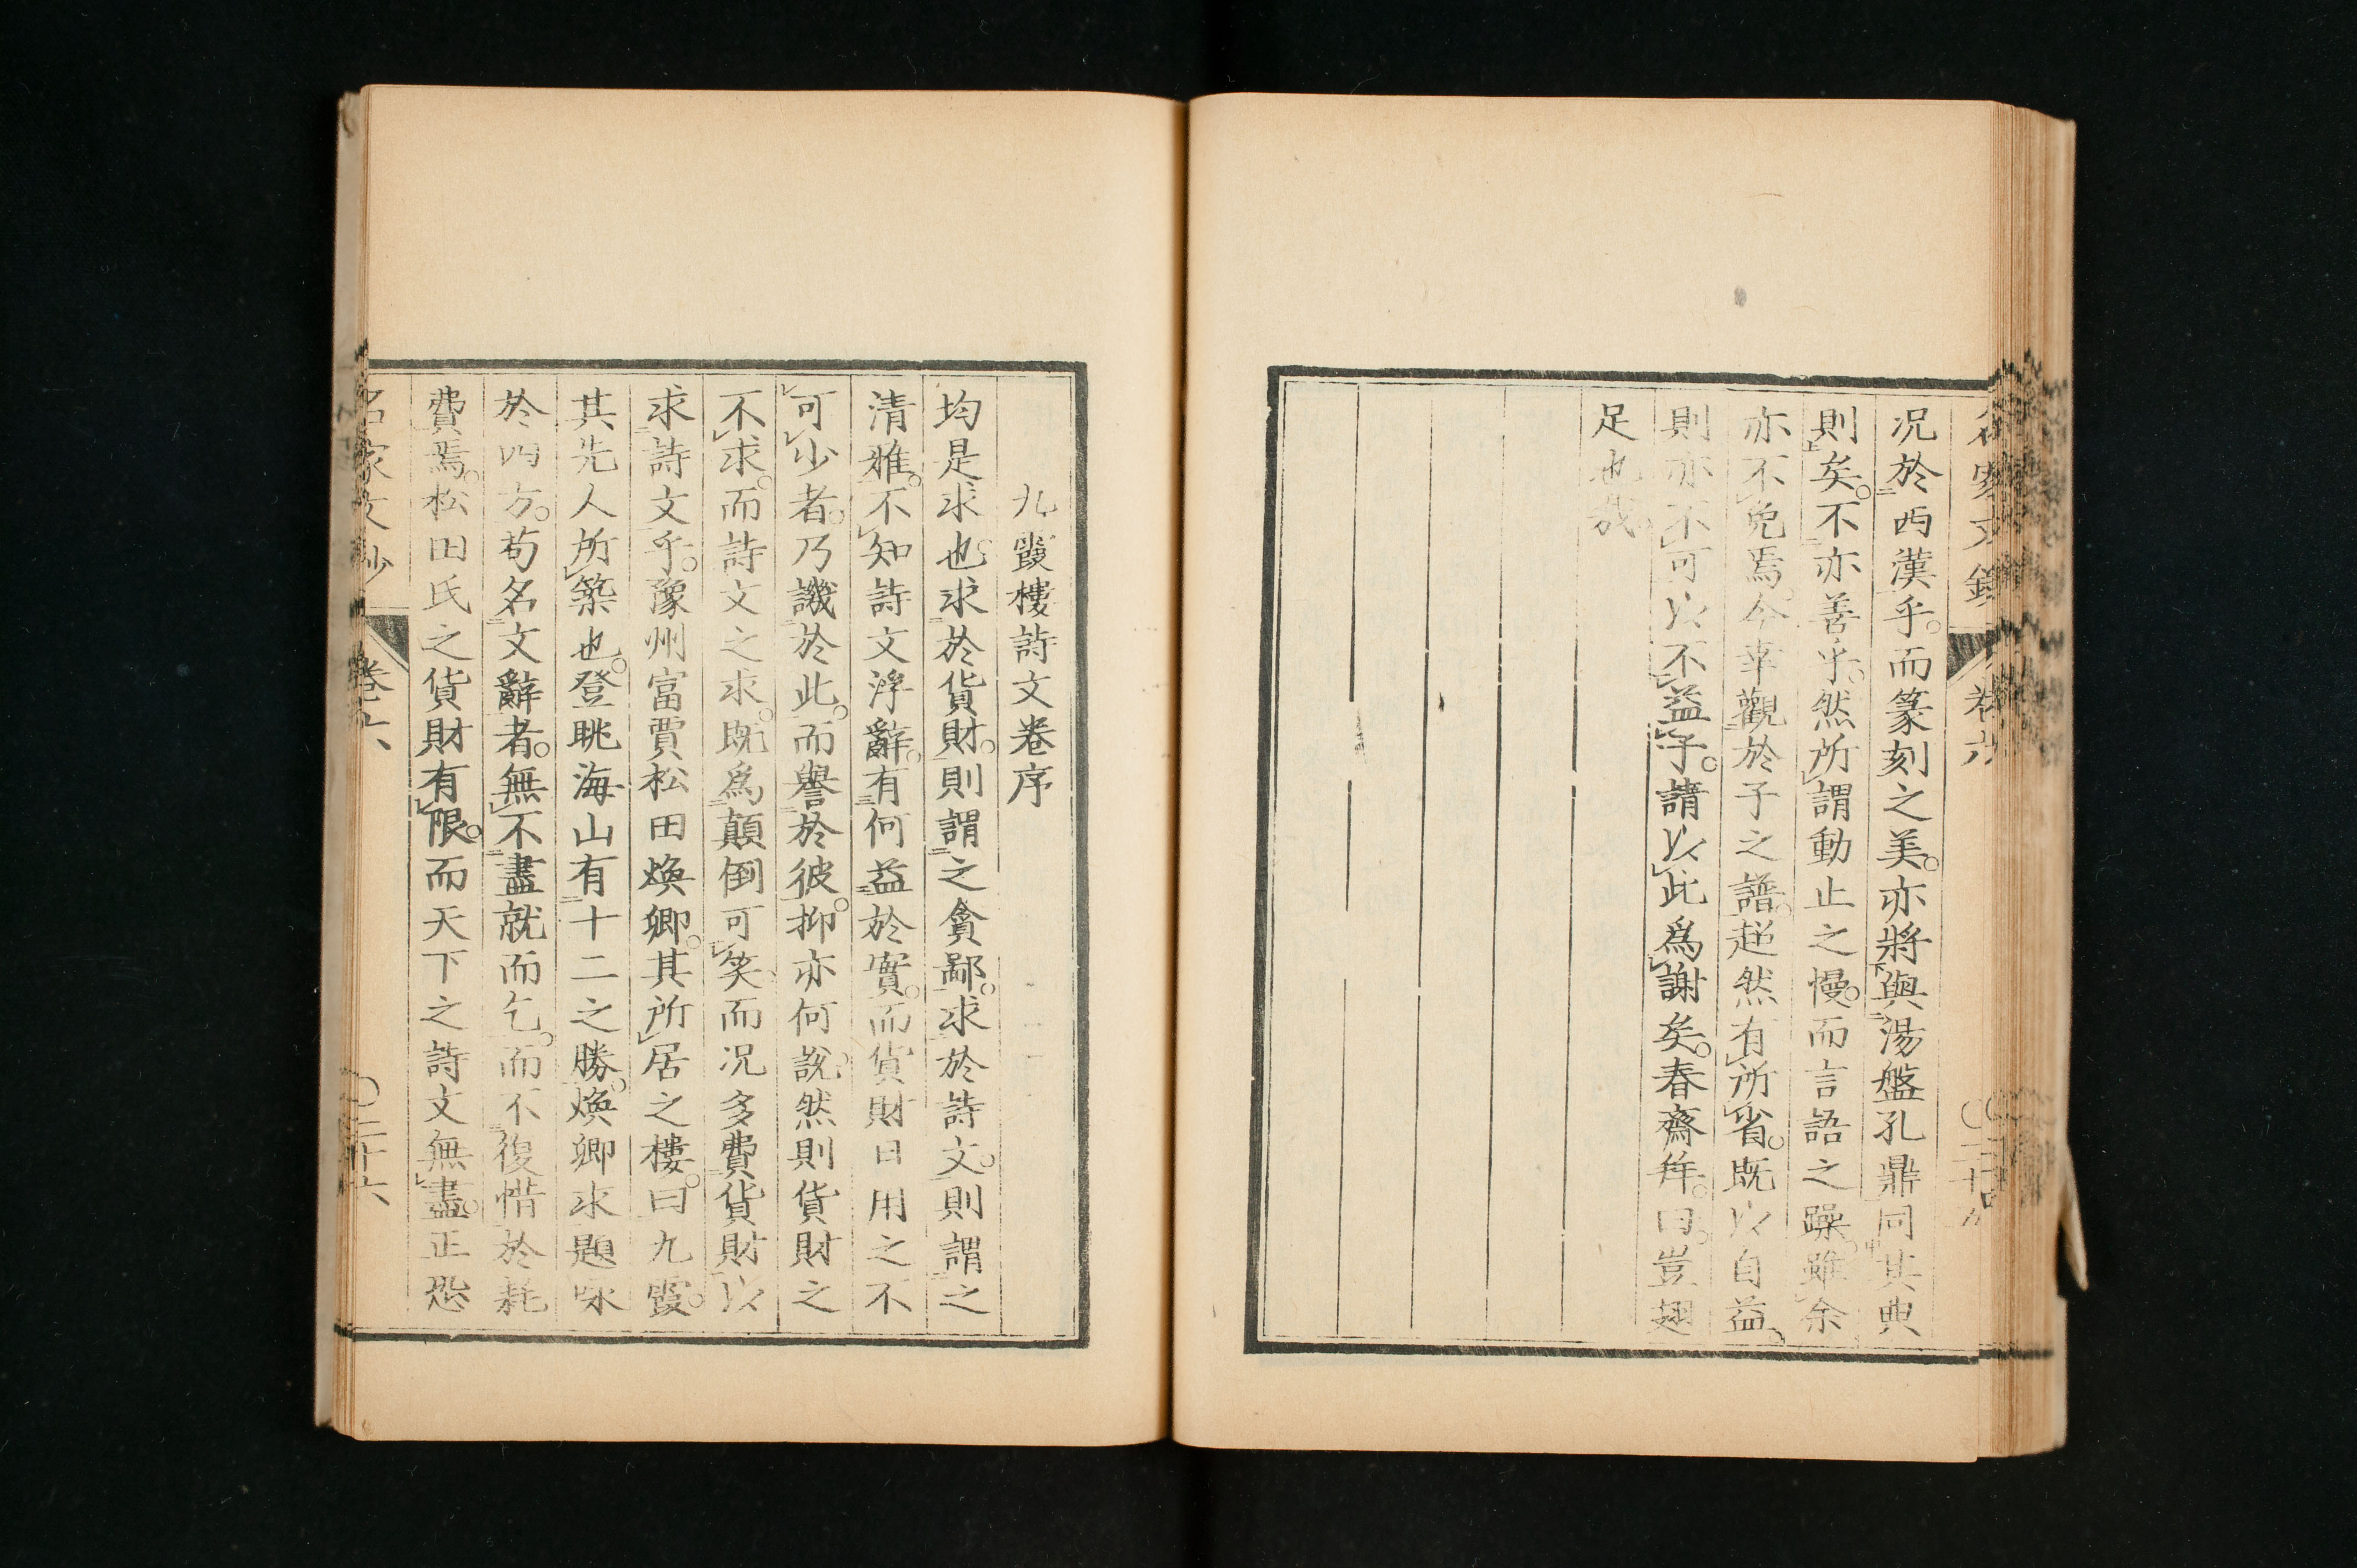 况於西漢乎。而篆刻之美。亦將與湯盤孔鼎同其典
則矣。不亦善乎。然所謂動止之慢。而言語之躁。雖余
亦不免焉。今幸觀於子之譜。超然有所省。既以自益。
則亦不可以不益子。請以此爲謝矣。春齋拜。曰。豈翅
足也哉
九霞樓詩文卷序
均是求也。求於貨財。則謂之貪鄙。求於詩文。則謂之
清雅。不知詩文浮辭。有何益於實。而貨財日用之不
可少者。乃譏於此。而譽於彼。抑亦何說。然則貨財之
不求。而詩文之求。既爲顛倒可笑。而况多費貨財以
求詩文乎。豫州富賈松田煥卿。其所居之樓。曰九霞。
其先人所築也。登眺海山有十二之勝。煥卿求題咏
於四方。苟名文辭者。無不盡就而乞。而不復惜於耗
費焉。松田氏之貨財有限。而天下之詩文無盡。正恐
名家文抄 卷六 〇三十六